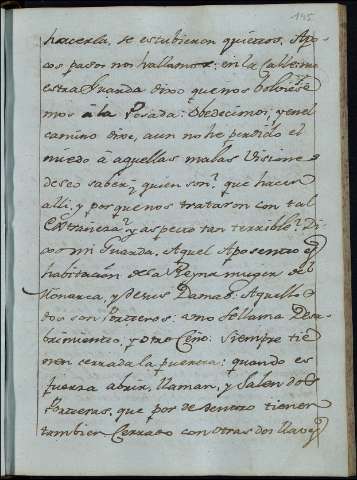 195
hacerla, se estubieron quietos, Apo-
cos pasos nos hallamos en la Calle: nu-
estra Guarda dixo que nos bolviese-
mos à la Posada: Obedecimos; y en el
camino dixe, aun no he perdido el
miedo à aquellas malas Visiones
deseo saber, quien son? que hacen
alli, y por que nos trataron con tal
extrañeza? y aspecto tan terrible? Di-
xo mi Guarda, Aquel Aposento es
habitacion de la Reyna muger del
Monarca, y de sus Damas: Aquellos
dos son Porteros: uno se llama Desa-
brimiento, y otro Ceño: Siempre tie-
nen cerrada la puerta: quando es
fuerza abrir, llaman, y salen dos
Porteras, que por de dentro tienen
tambien Cerrado con otras dos llaves